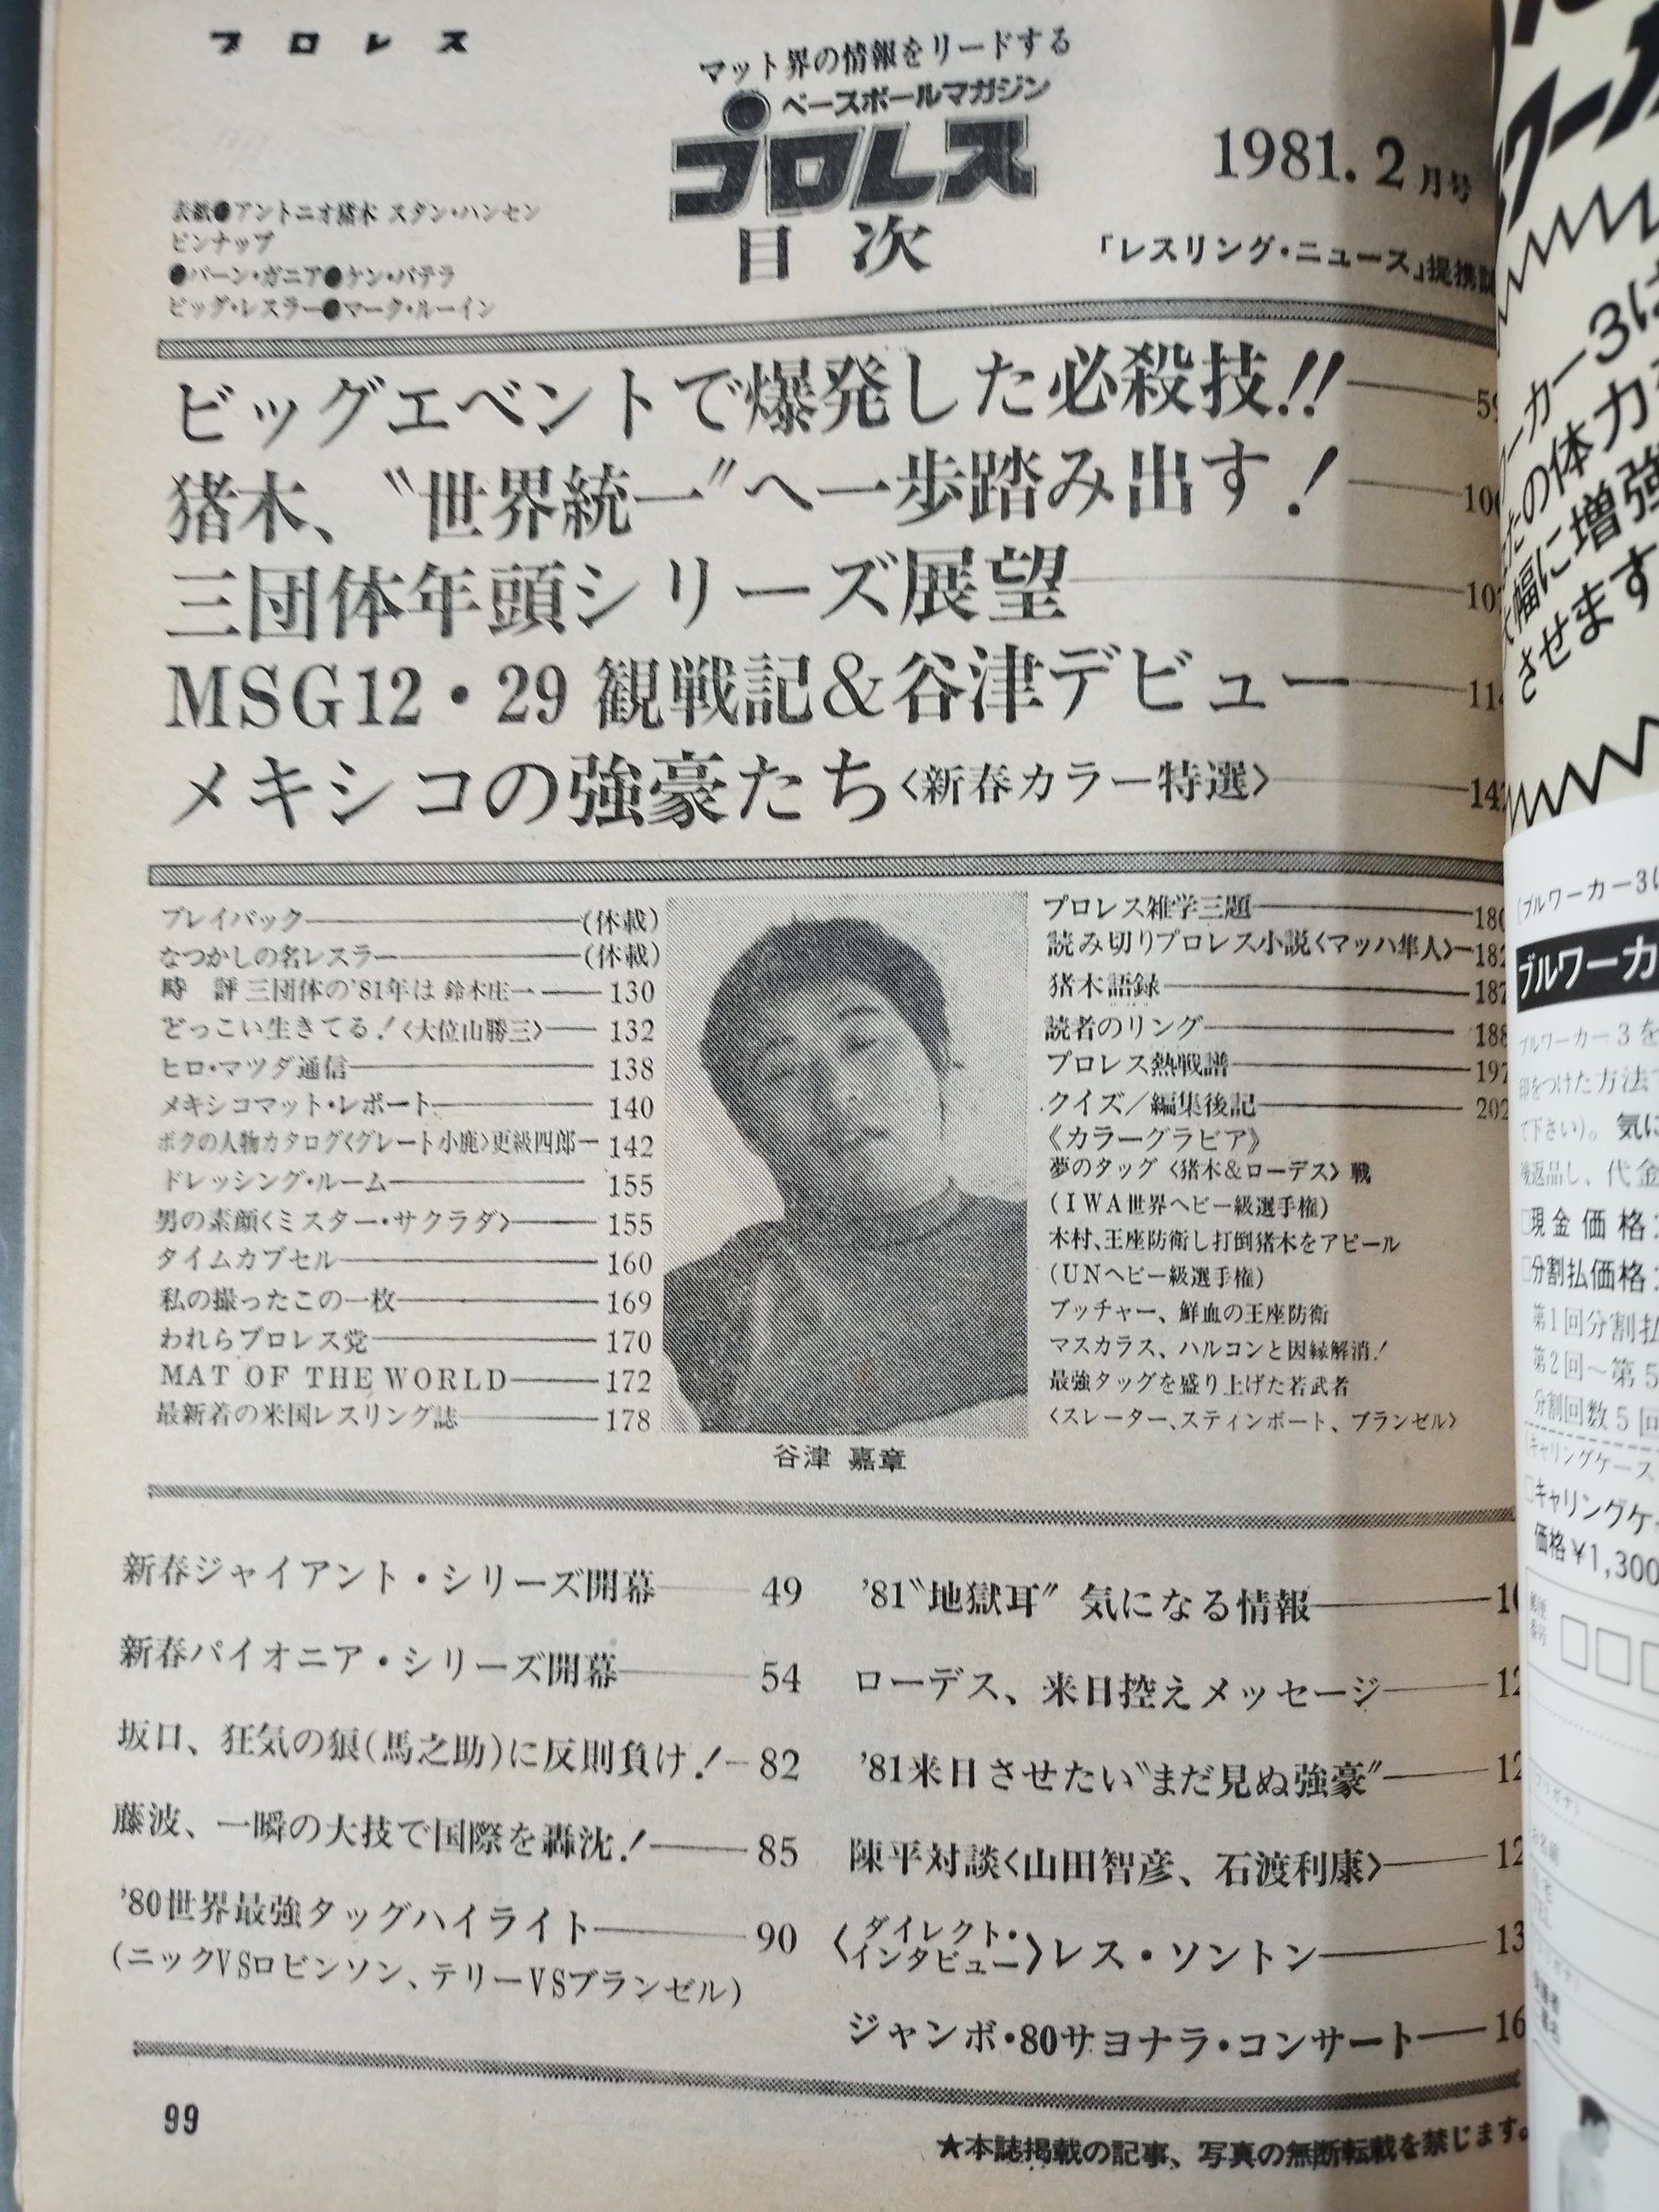 プロレス
マット界の情報をリードする
ベースボールマガジン
プロレス
目次
1981.2月号
「レスリング・ニュース」提携
表紙●アントニオ猪木 スタン・ハンセン
ピンナップ
●バーン・ガニア●ケン・パテラ
ビッグ・レスラー●マーク・ルーイン
ビッグエベントで爆発した必殺技!!
猪木、〝世界統一〟へ一歩踏み出す!
三団体年頭シリーズ展望
MSG12・29 観戦記&谷津デビュー
メキシコの強豪たち〈新春カラー特選〉
プレイバック――(休載)
なつかしの名レスラー――(休載)
時 評 三団体の'81年は 鈴木庄一――130
どっこい生きてる!〈大位山勝三〉――132
ヒロ・マツダ通信――138
メキシコマット・レポート――140
ボクの人物カタログ〈グレート小鹿〉更級四郎―142
ドレッシング・ルーム――155
男の素顔〈ミスター・サクラダ〉――155
タイムカプセル――160
私の撮ったこの一枚――169
われらプロレス党――170
MAT OF THE WORLD――172
最新着の米国レスリング誌――178
谷津 嘉章
プロレス雑学三題――
読み切りプロレス小説〈マッハ隼人〉―
猪木語録――
読者のリング――
プロレス熱戦譜――
クイズ/編集後記――
《カラーグラビア》
夢のタッグ〈猪木&ローデス〉戦
(IWA世界ヘビー級選手権)
木村、王座防衛し打倒猪木をアピール
(UNヘビー級選手権)
ブッチャー、鮮血の王座防衛
マスカラス、ハルコンと因縁解消!
最強タッグを盛り上げた若武者
〈スレーター、スティンボート、ブランゼル〉
新春ジャイアント・シリーズ開幕――49
新春パイオニア・シリーズ開幕――54
坂口、狂気の狼(馬之助)に反則負け!―82
藤波、一瞬の大技で国際を轟沈!――85
'80世界最強タッグハイライト――90
(ニックVSロビンソン、テリーVSブランゼル)
'81〝地獄耳〟気になる情報――
ローデス、来日控えメッセージ――
'81来日させたい〝まだ見ぬ強豪〟――
陳平対談〈山田智彦、石渡利康〉――
〈ダイレクト・インタビュー〉レス・ソントン――
ジャンボ・80サヨナラ・コンサート――
99
★本誌掲載の記事、写真の無断転載を禁じます。
ワーカー3は
の体力
幅に増強
させます
ブルワーカー3
ブルワーカ
ブルワーカー3を
印をつけた方法
て下さい)。気に
後返品し、代金
□現金価格
□分割払価格
第1回分割払
第2回〜第5
分割回数5回
キャリングケース
□キャリングケ
価格¥1,300